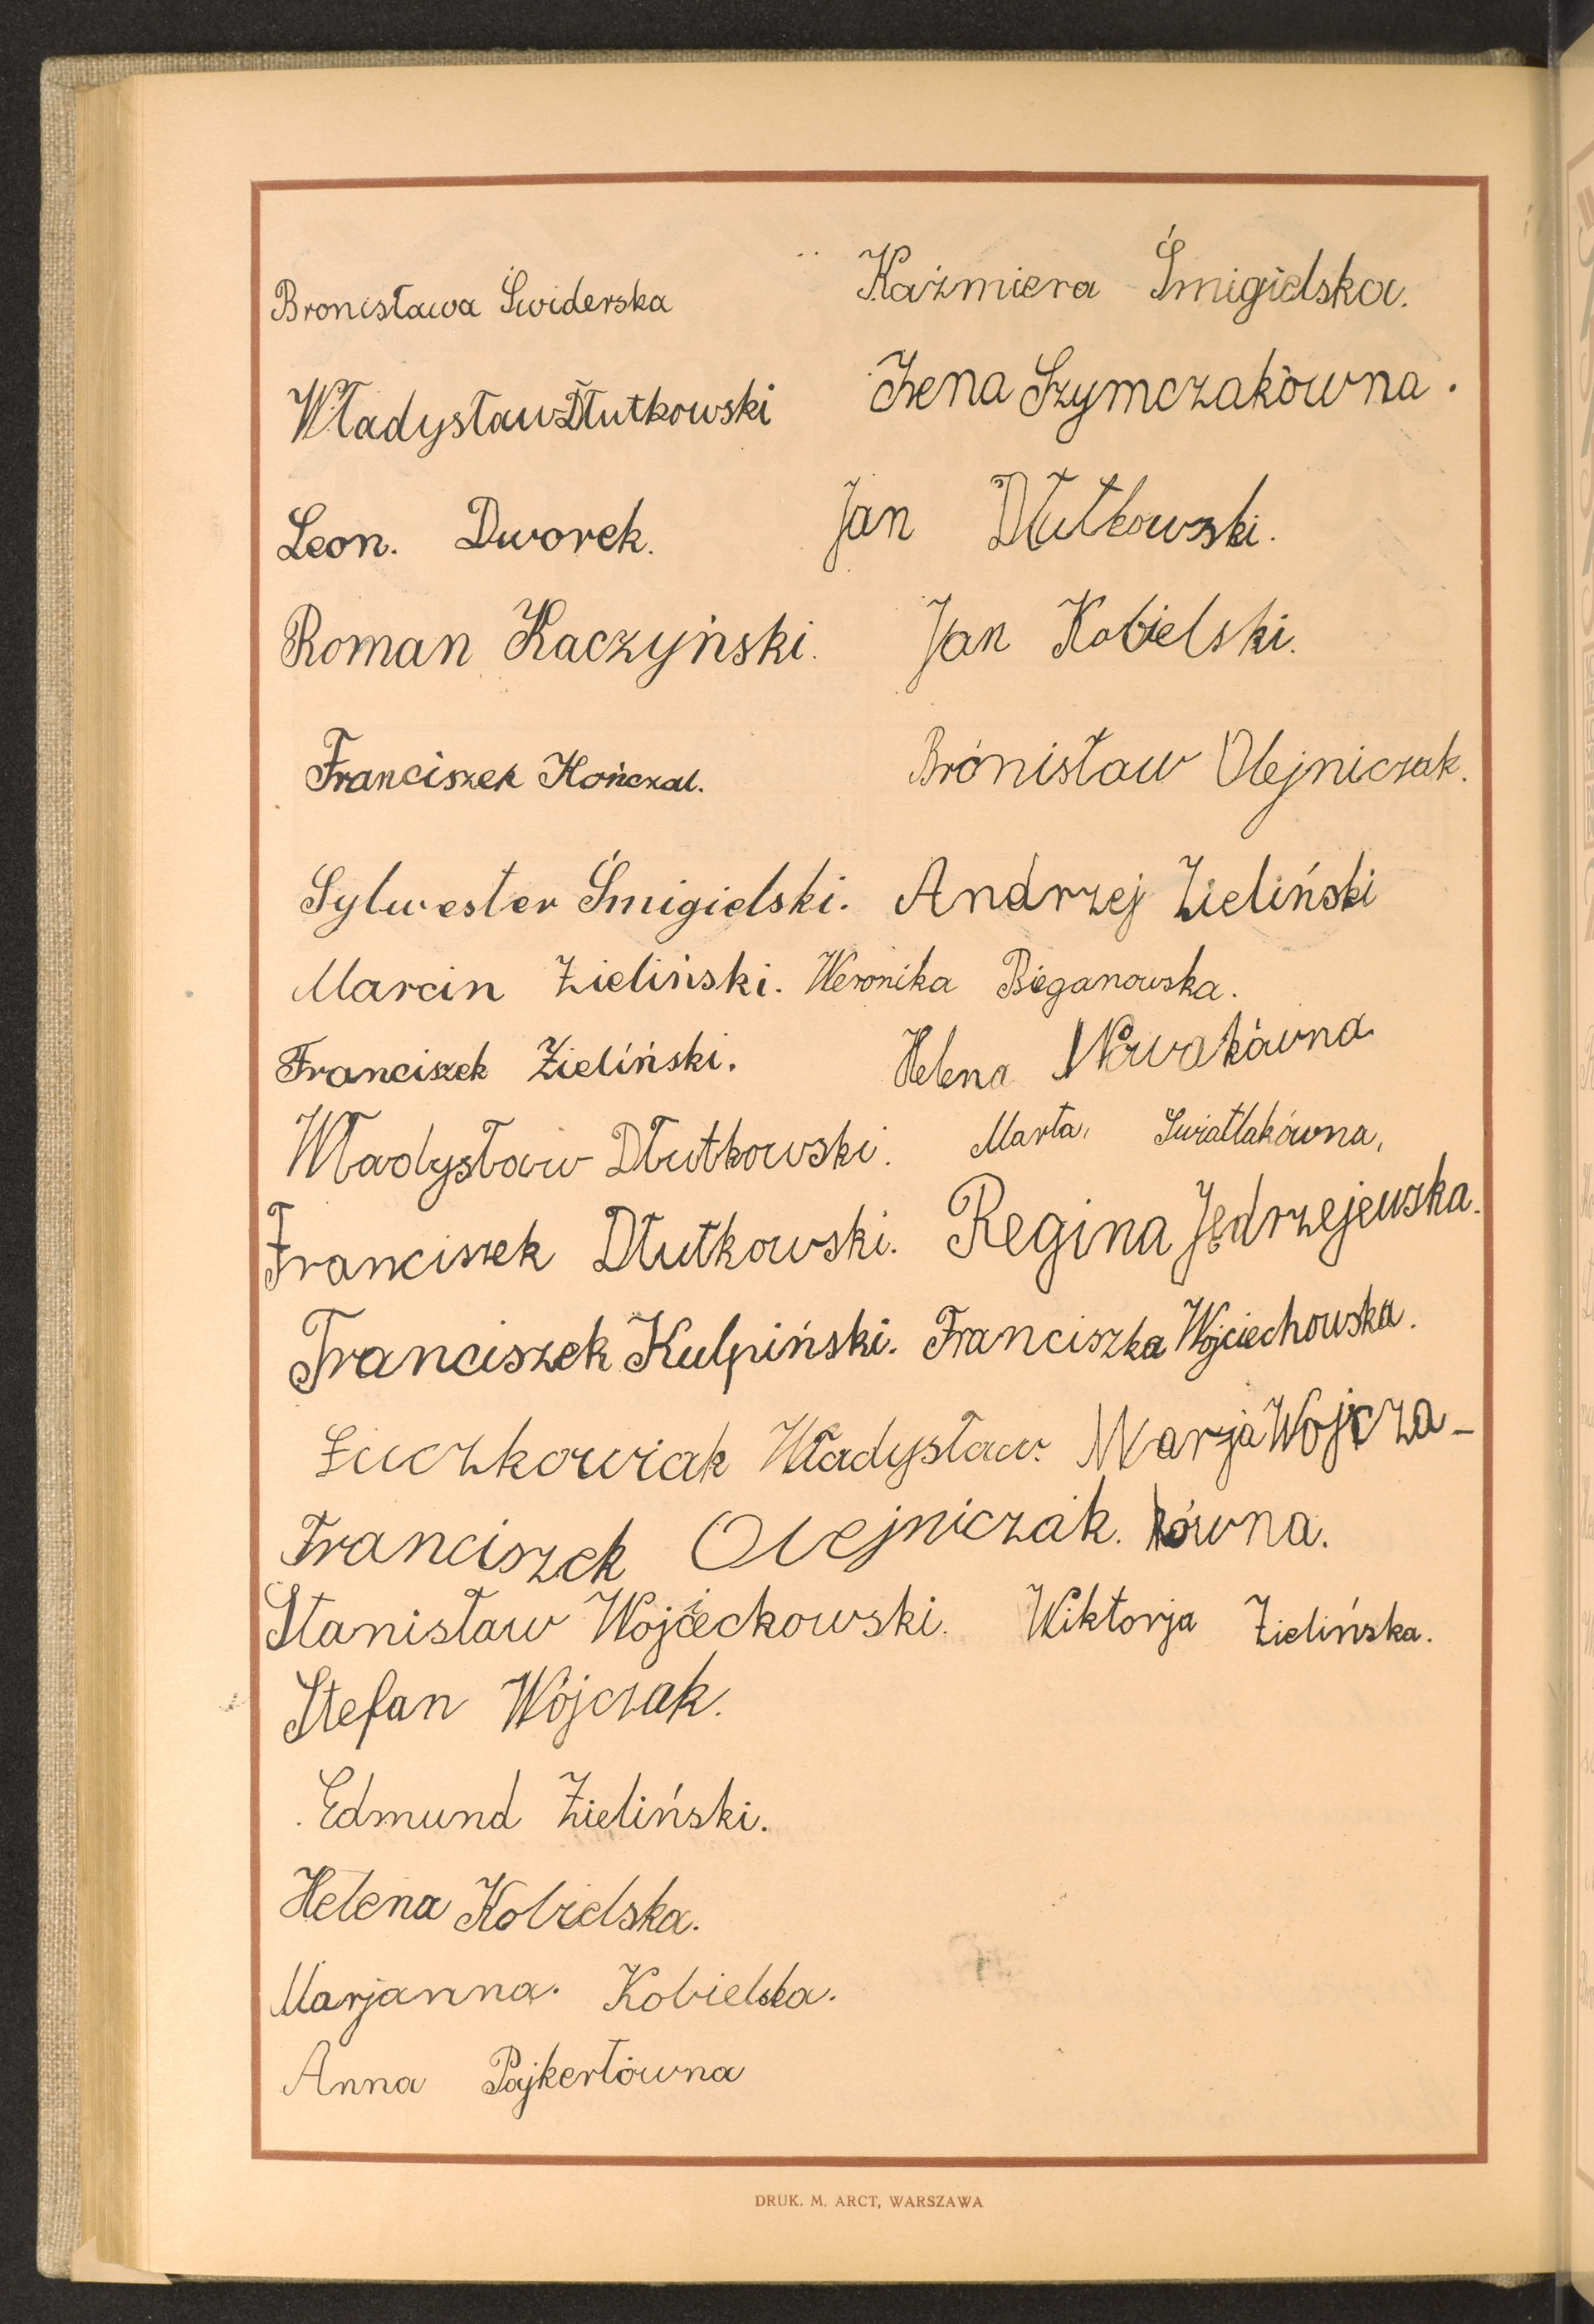 Bronisława Świderska Kaźmiera Śmigielska.
Władysław Dłutkowski Irena Szymczakówna.
Leon. Dworek. Jan Dłutkowski.
Roman Kaczyński. Jan Kobielski.
Franciszek Kończal. Brónisław Olejniczak.
Sylwester Śmigielski. Andrzej Zieliński
Marcin Zieliński. Weronika Bieganowska.
Franciszek Zieliński. Helena Nowakówna
Władysław Dłutkowski. Marta, Swiatlakówna,
Franciszek Dłutkowski. Regina Jędrzejewska.
Franciszek Kulpiński. Franciszka Wojciechowska.
Łuczkowiak Władysław. Marja Wojcza-
Franciszek Olejniczak. kówna.
Stanisław Wojcieckowski. Wiktorja Zielińska.
Stefan Wójczak.
Edmund Zieliński.
Helena Kobielska.
Marjanna. Kobielska.
Anna Pajkertówna
DRUK. M. ARCT, WARSZAWA